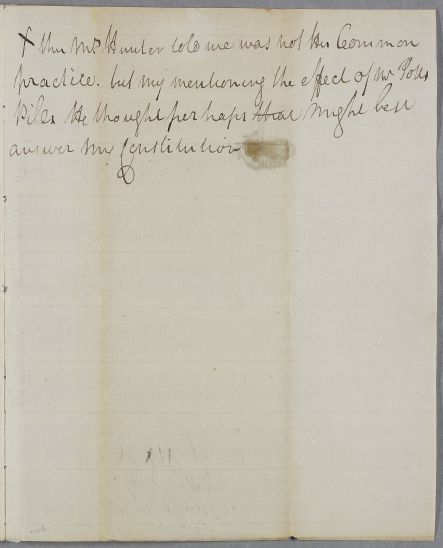 x this Mr Hunter told me was not his Common
practice. but my mentioning the effect of Mr Potts
Piles He thought perhaps that might best
answer my Constitution